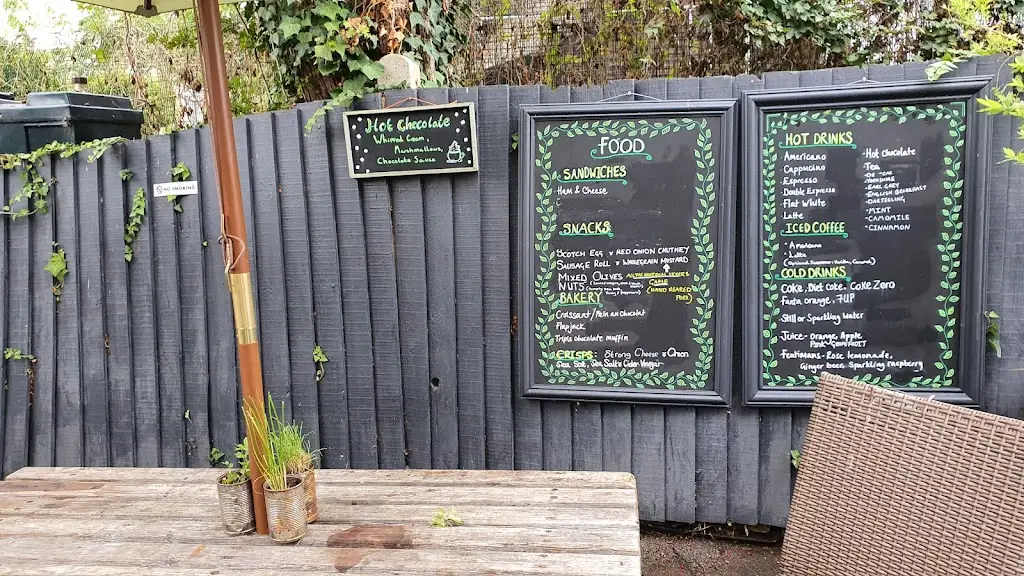 NO SMOKING
Hot Chocolate
Whipped Cream
Marshmallows,
Chocolate Sauce
FOOD
SANDWICHES
Ham & Cheese
SNACKS
SCOTCH EGG & RED ONION CHUTNEY
SAUSAGE ROLL & WHOLEGRAIN MUSTARD
MIXED OLIVES
NUTS
(HAND REARED PORK)
BAKERY
Croissant/Pain au Chocolat
Flapjack
Triple chocolate Muffin
CRISPS: Strong Cheese & Onion
Sea Salt, Sea Salt & Cider Vinegar
HOT DRINKS
Americano
Cappuccino
Espresso
Double Espresso
Flat White
Latte
-Hot chocolate
-Tea
-YORKSHIRE
-EARL GREY
-ENGLISH BREAKFAST
-DARJEELING
-MINT
-CAMOMILE
-CINNAMON
ICED COFFEE
-Americano
-Latte
COLD DRINKS
Coke, Diet Coke, Coke Zero
Fanta orange, 7UP
Still or Sparkling Water
Juice- orange, Apple
PINK GRAPEFRUIT
Fentimans- Rose lemonade,
Ginger beer, Sparkling raspberry